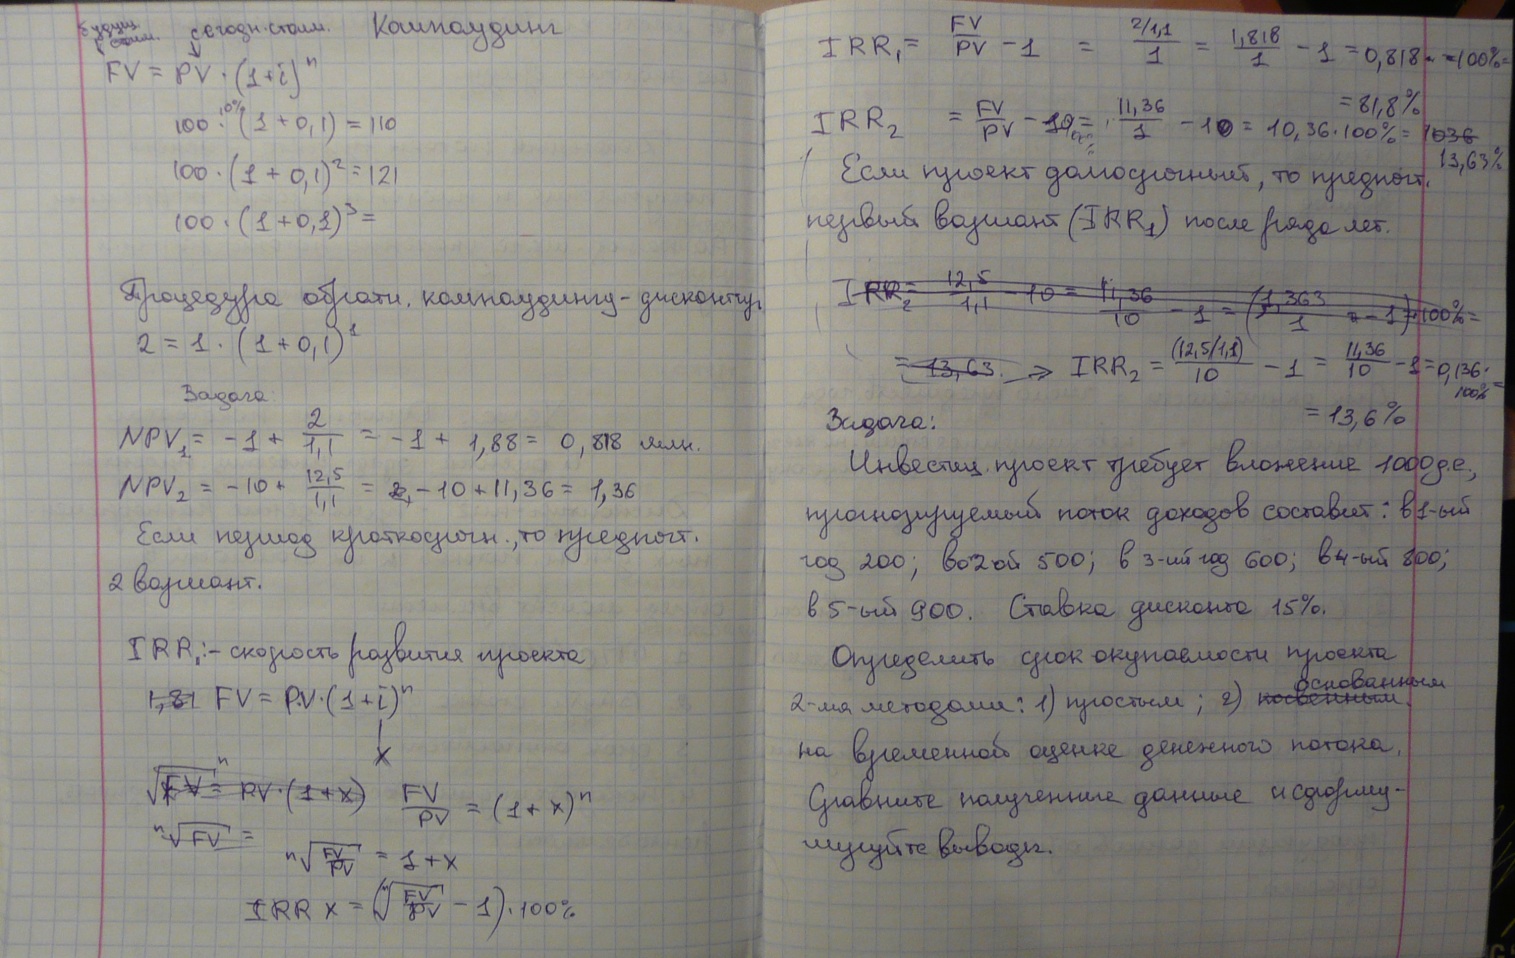 будущ. стоим. сегодн. стоим. Компаундинг
FV = PV · (1+i)^n
100 · 10% (1+0,1) = 110
100 · (1+0,1)^2 = 121
100 · (1+0,1)^3 =
Процедура обратн. компаундингу - дисконтир.
2 = 1 · (1+0,1)^1
Задача
NPV1 = -1 + 2/1,1 = -1 + 1,88 = 0,818 млн.
NPV2 = -10 + 12,5/1,1 = -10 + 11,36 = 1,36
Если период краткосрочн., то предпочт.
2 вариант.
IRR1: - скорость развития проекта
1,81 FV = PV·(1+i)^n
x
√FV^n = PV·(1+x) FV/PV = (1+x)^n
n√FV =
n√(FV/PV) = 1+x
IRR x = (n√(FV/PV) - 1)·100%
IRR1 = FV/PV - 1 = 2/1,1/1 = 1,818/1 - 1 = 0,818 · 100% =
= 81,8%
IRR2 = FV/PV - 10 = 11,36/1 - 10 = 10,36·100% = 1036
13,63%
Если проект долгосрочный, то предпочт.
первый вариант (IRR1) после ряда лет.
IRR2 = 12,5/1,1 - 10 = 11,36/10 - 1 = (1,363/1 - 1)·100% =
= 13,63. → IRR2 = (12,5/1,1)/10 - 1 = 11,36/10 - 1 = 0,136·
100% =
= 13,6%
Задача:
Инвестиц. проект требует вложение 1000 д.е.,
прогнозируемый поток доходов составит: в 1-ый
год 200; во 2ой 500; в 3-ий год 600; в 4-ый 800;
в 5-ый 900. Ставка дисконта 15%.
Определить срок окупаемости проекта
2-мя методами: 1) простым; 2) косвенным основанным
на временной оценке денежного потока.
Сравните полученные данные и сформу-
лируйте выводы.